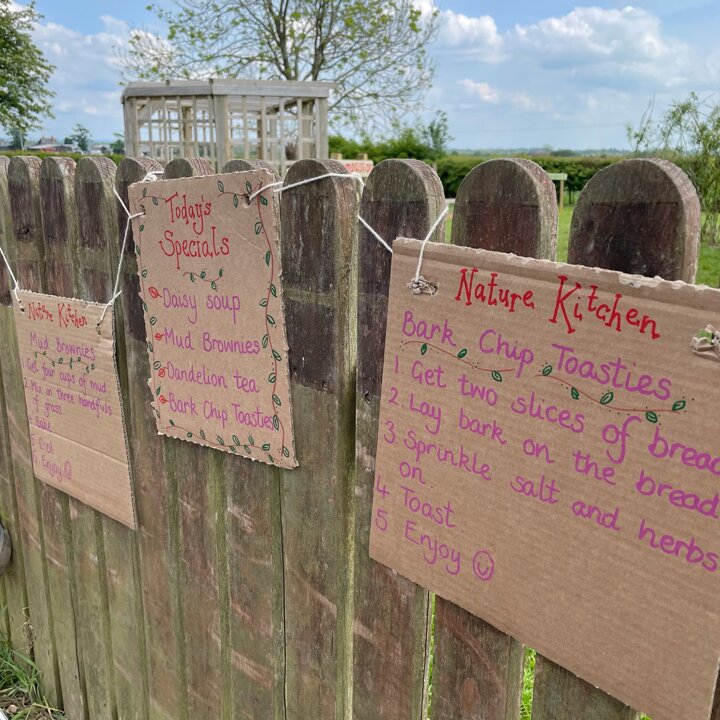 Nature Kitchen
Mud Brownies
1 Get four cups of mud
2 Mix in three handfuls
of grass
5 Enjoy ☺
Today's
Specials
Daisy soup
Mud Brownies
Dandelion tea
Bark Chip Toasties
Nature Kitchen
Bark Chip Toasties
1. Get two slices of bread
2. Lay bark on the bread
3. Sprinkle salt and herbs
on
4 Toast
5 Enjoy ☺